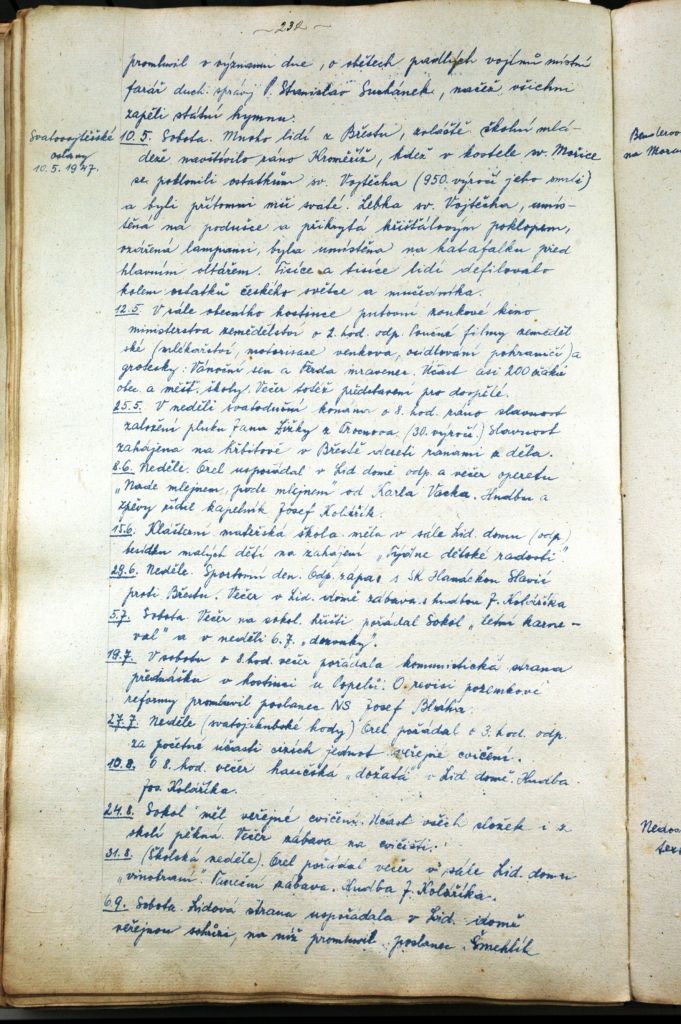 - 232 -
promluvil o významu dne, o obětech padlých vojínů místní
farář duch. správy P. Stanislav Suchánek, načež všichni
zapěli státní hymnu.
Svatovojtěšské
oslavy
10.5.1947.
10.5. Sobota. Mnoho lidí z Břestu, zvláště školní mlá-
deže navštívilo ráno Kroměříž, kdež v kostele sv. Mořice
se poklonili ostatkům sv. Vojtěcha (950. výročí jeho smrti)
a byli přítomni mši svaté. Lebka sv. Vojtěcha, umís-
těná na podušce a přikrytá křišťálovým poklopem,
ozářená lampami, byla umístěna na katafalku před
hlavním oltářem. Tisíce a tisíce lidí defilovalo
kolem ostatků českého světce a mučedníka.
12.5. V sále obecního hostince putovní zvukové kino
ministerstva zemědělství o 2. hod. odp. Poučné filmy zeměděl
ské (mlékařství, motorisace venkova, osídlování pohraničí) a
grotesky: Vánoční sen a Ferda mravenec. Účast asi 200 žáků
obec. a měšť. školy. Večer totéž představení pro dospělé.
25.5. V neděli svatodušní konána o 8. hod. ráno slavnost
založení pluku Jana Žižky z Trocnova. (30. výročí.) Slavnost
zahájena na hřbitově v Břestě deseti ranami z děla.
8.6. Neděle. Orel uspořádal v Lid. domě odp. a večer operetu
„Nade mlejnem, pode mlejnem" od Karla Vacka. Hudbu a
zpěvy řídil kapelník Josef Kolářík.
15.6. Klášterní mateřská škola měla v sále Lid. domu (odp.)
besídku malých dětí na zahájení „Týdne dětské radosti"
29.6. Neděle. Sportovní den. Odp. zápas s SK Hanáckou Slavií
proti Břestu. Večer v Lid. domě zábava s hudbou J. Kolaříka
5.7. Sobota. Večer na sokol. hřišti pořádal Sokol „letní karne-
val" a v neděli 6.7. „dozvuky".
19.7. V sobotu o 8. hod. večer pořádala komunistická strana
přednášku v hostinci u Popelů. O revisi pozemkové
reformy promluvil poslanec NS Josef Bláha.
27.7. Neděle (svatojakubské hody) Orel pořádal o 3. hod. odp.
za početné účasti cizích jednot veřejné cvičení.
10.8. O 8. hod. večer hanácká „dožatá" v Lid. domě. Hudba
Jos. Kolaříka.
24.8. Sokol měl veřejné cvičení. Účast všech složek i z
okolí pěkná. Večer zábava na cvičišti.
31.8. (Školská neděle). Orel pořádal večer v sále Lid. domu
„vinobraní". Taneční zábava. Hudba J. Kolaříka.
6.9. Sobota. Lidová strana uspořádala v Lid. domě
veřejnou schůzi, na níž promluvil poslanec Šmehlík
na Mora
Nedos